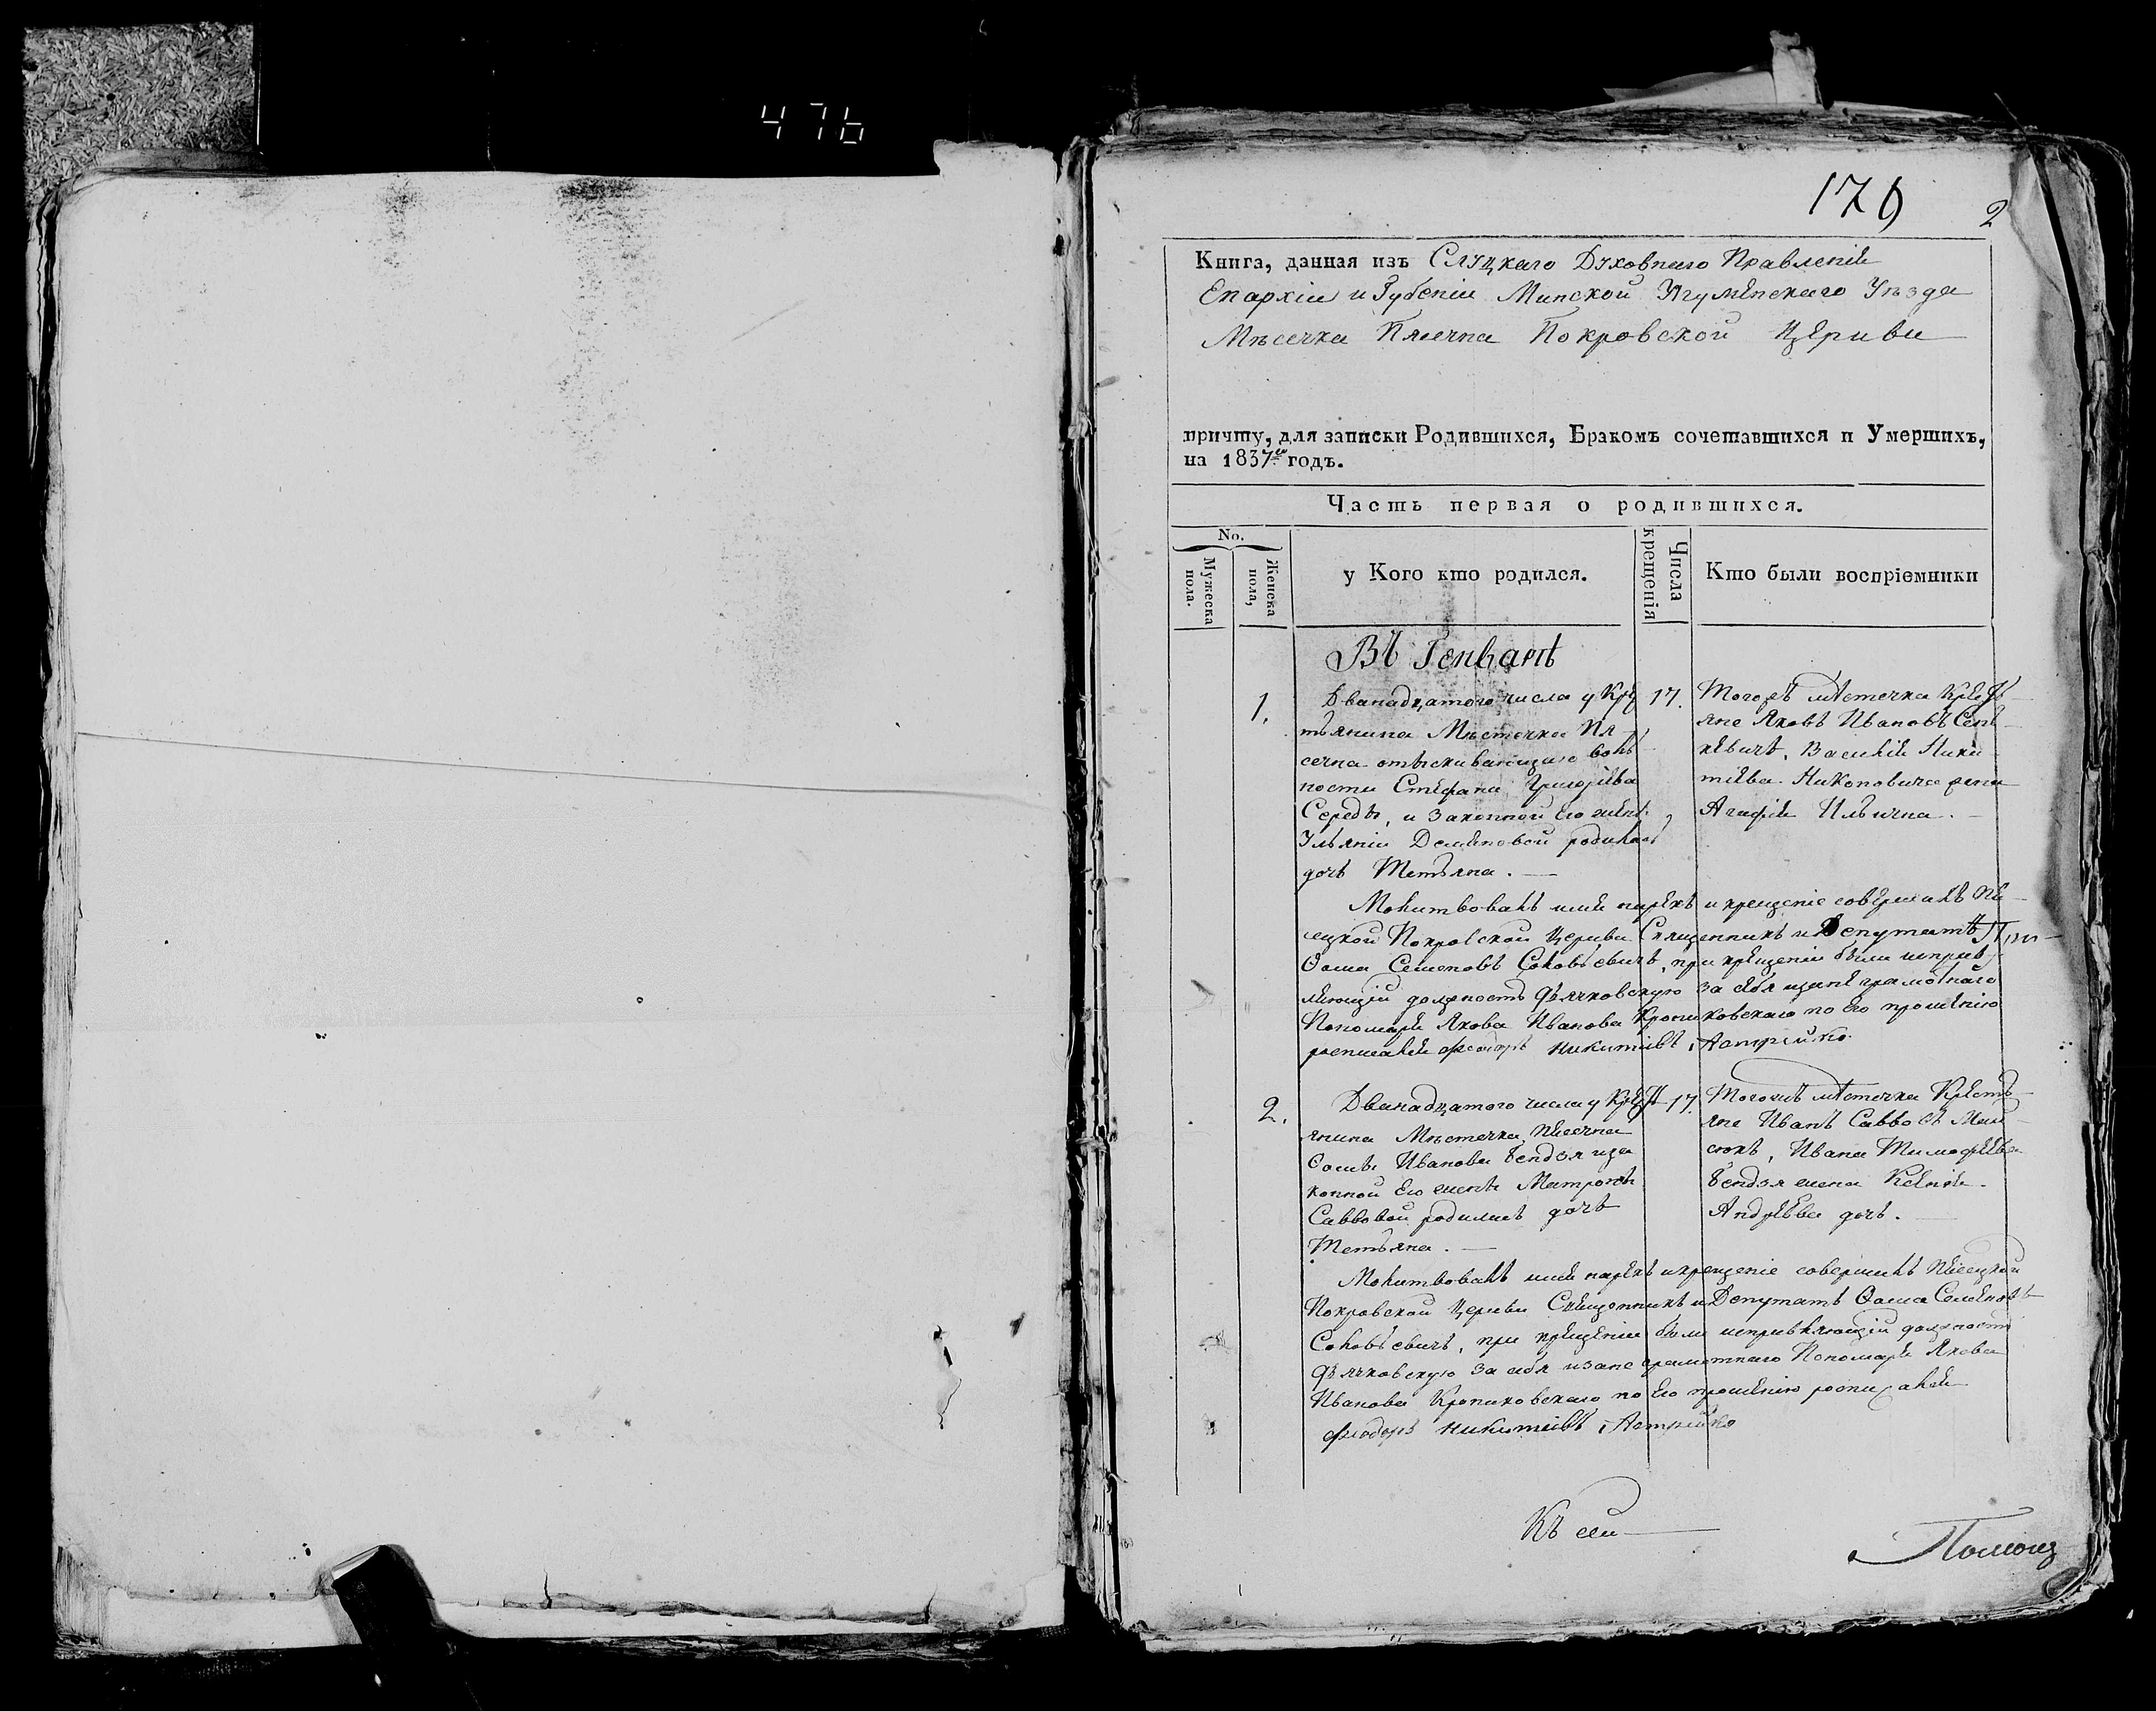 476
179
2
Книга, данная изъ Слуцкаго Духовнаго Правленія
Епархіи и Губеніи Минской Игуменскаго Уѣзда
Мѣсечка Пясечна Покровской Церкви
причту, для записки Родившихся, Бракомъ сочетавшихся и Умершихъ,
на 1837го годъ.
Часть первая о родившихся.
No.
Мужеска пола.
Женска пола,
у Кого кто родился.
Числа крещенія
Кто были воспріемники
Въ Генварѣ
1.
Дванадцатого числа у Крес
тьянина Мѣстечка Пя
сечна отыскивающаго воль
ности Стефана Григорiева
Середы, и Законной Его жены
Ульяніи Демяновой родилась
дочь Тетьяна.
17.
Тогожъ мѣстечка Кресть
яне Яковъ Ивановъ Сень
кевичъ, Василія Ники
тіева Никоновича жена
Агафія Ильична.
Молитвовалъ имя нарекъ и крещеніе совершилъ Пя
сецкой Покровской Церкви Священникъ и Депутатъ
Ѳома Семеновъ Соловьевичъ, при крещеніи были исправ
ляющій должность Дьячковскую за себя и за не грамотнаго
Пономаря Якова Иванова Кропиковскаго по Его прошенію
росписался Феодоръ Никитіевъ Астрейко
2.
Дванадцатого числа у Крест
янина Мѣстечка Пясечна
Ѳомы Иванова Бендзя и за
конной Его жены Матроны
Саввовой родилась дочь
Тетьяна.
17.
Тогожъ мѣстечка Кресть
яне Иванъ Саввовъ
сюкъ, Ивана Тимофеева
Бендзя жена Ксенія
Андреева дочь.
Молитвовалъ имя нарекъ и крещеніе совершилъ Пясецкой
Покровской Церкви Священникъ и Депутатъ Ѳома Семеновъ
Соловьевичъ, при крещеніи были исправляющій должность
Дьячковскую за себя и за не грамотнаго Пономаря Якова
Иванова Кропиковскаго по Его прошенію росписался
Феодоръ Никитіевъ Астрейко
Къ сей